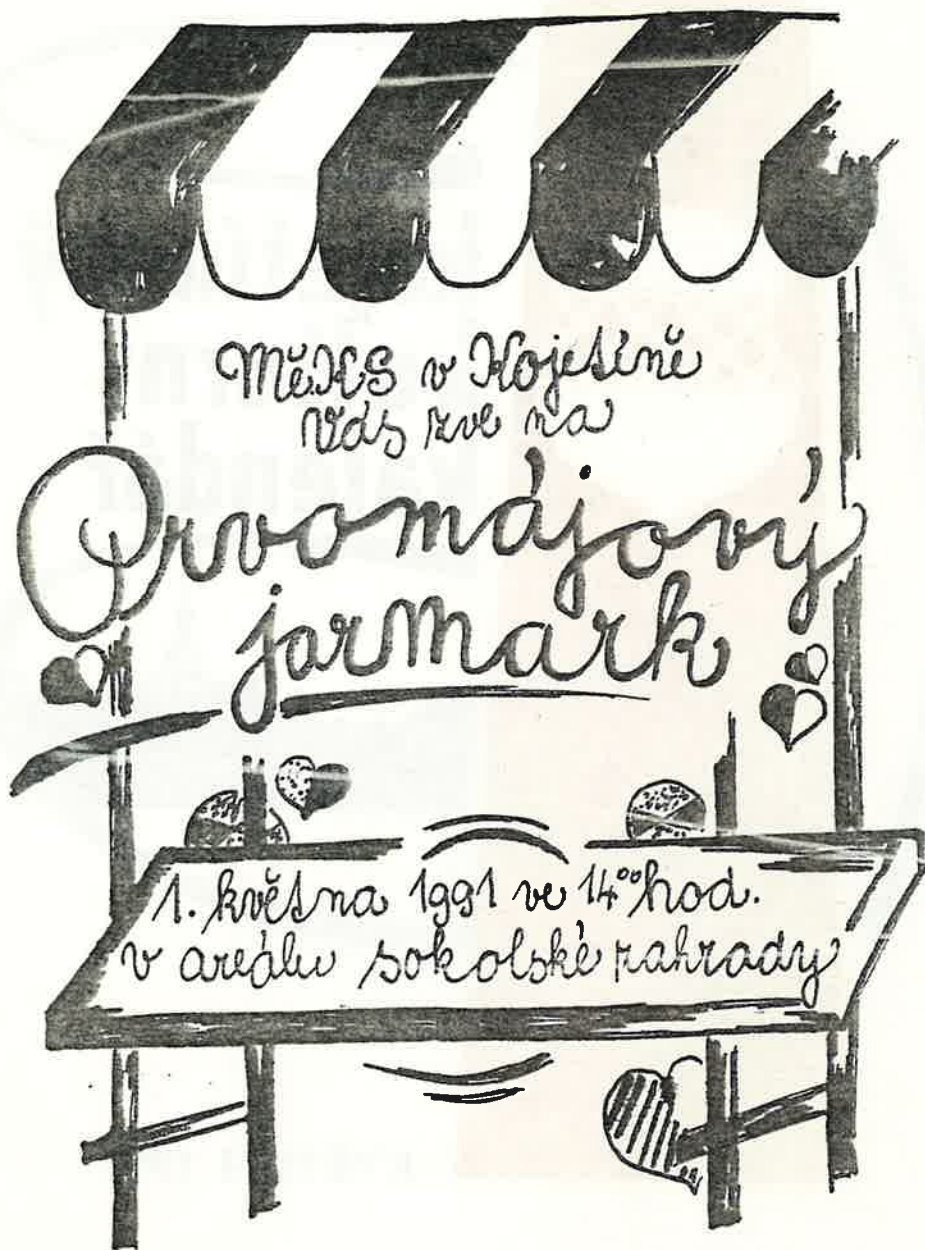 MěKS v Kojetíně
Vás zve na
Prvomájový
jarmark
1. května 1991 ve 14⁰⁰ hod.
v areálu sokolské zahrady